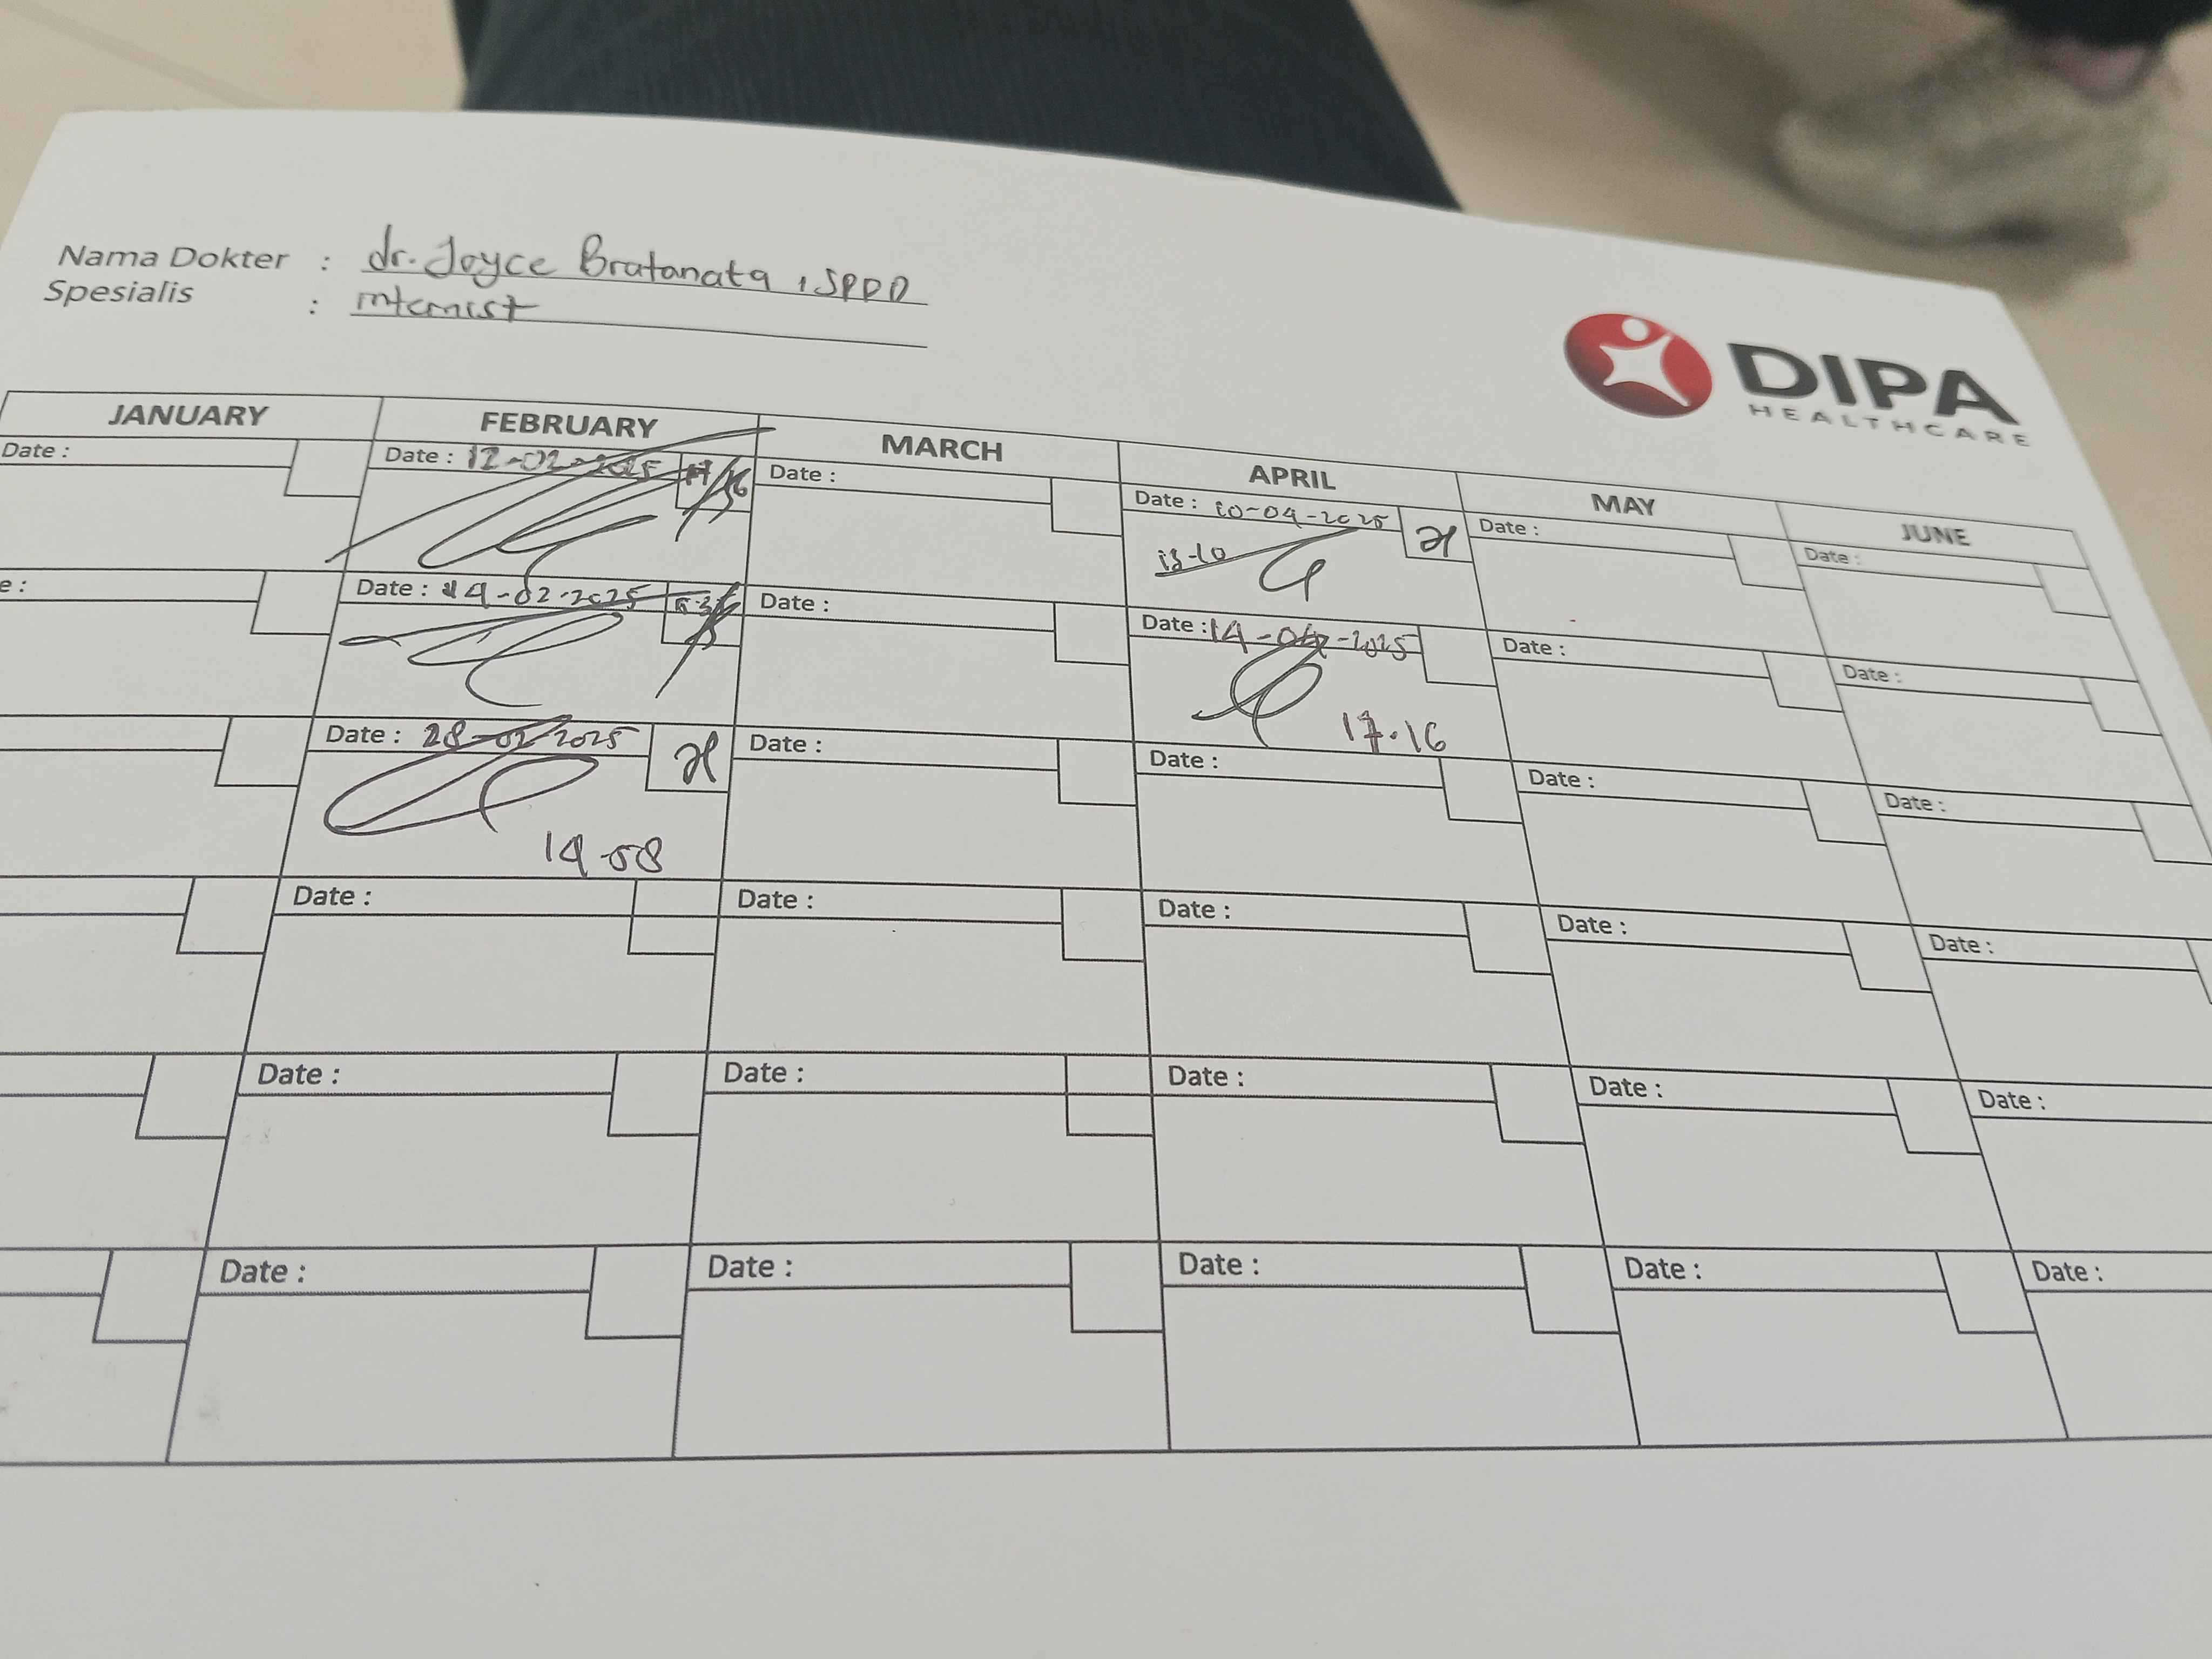 Nama Dokter : dr. Joyce Bratanata, SPPD
Spesialis : internist
DIPA
HEALTHCARE
JANUARY FEBRUARY MARCH APRIL MAY JUNE
Date : Date : 12-02-2025 Date : Date : 10-04-2025 Date : Date :
e : Date : 14-02-2025 Date : Date : 14-04-2025 Date : Date :
17.16
Date : 28-02-2025 Date : Date : Date : Date :
14-08
Date : Date : Date : Date : Date :
Date : Date : Date : Date : Date :
Date : Date : Date : Date : Date :